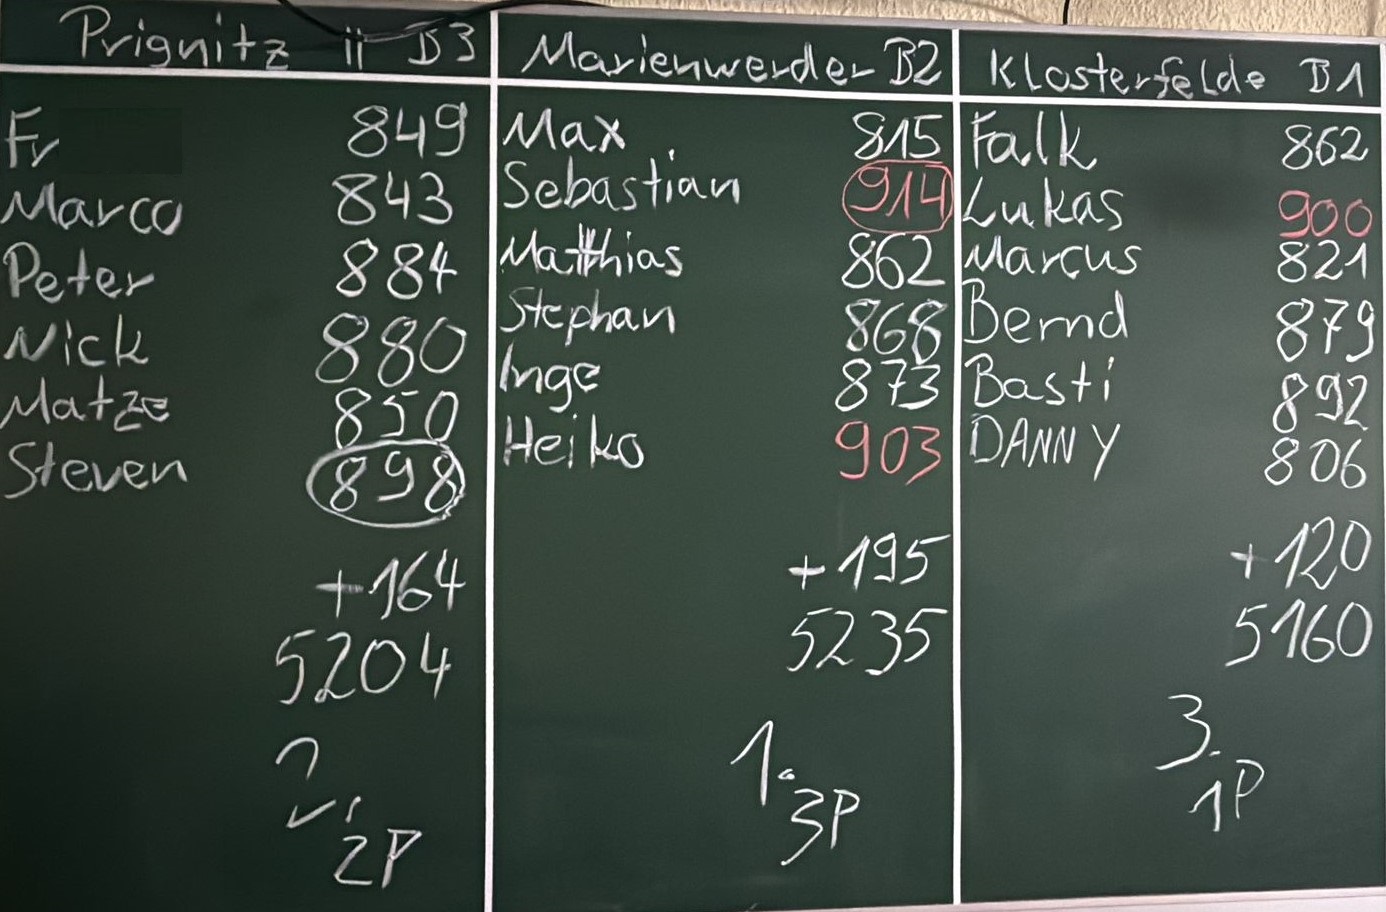 Prignitz II B3
Fr 849
Marco 843
Peter 884
Nick 880
Matze 850
Steven 898
+164
5204
2.
2P
Marienwerder B2
Max 815
Sebastian 914
Matthias 862
Stephan 868
Inge 873
Heiko 903
+195
5235
1.
3P
Klosterfelde B1
Falk 862
Lukas 900
Marcus 821
Bernd 879
Basti 892
DANNY 806
+120
5160
3.
1P